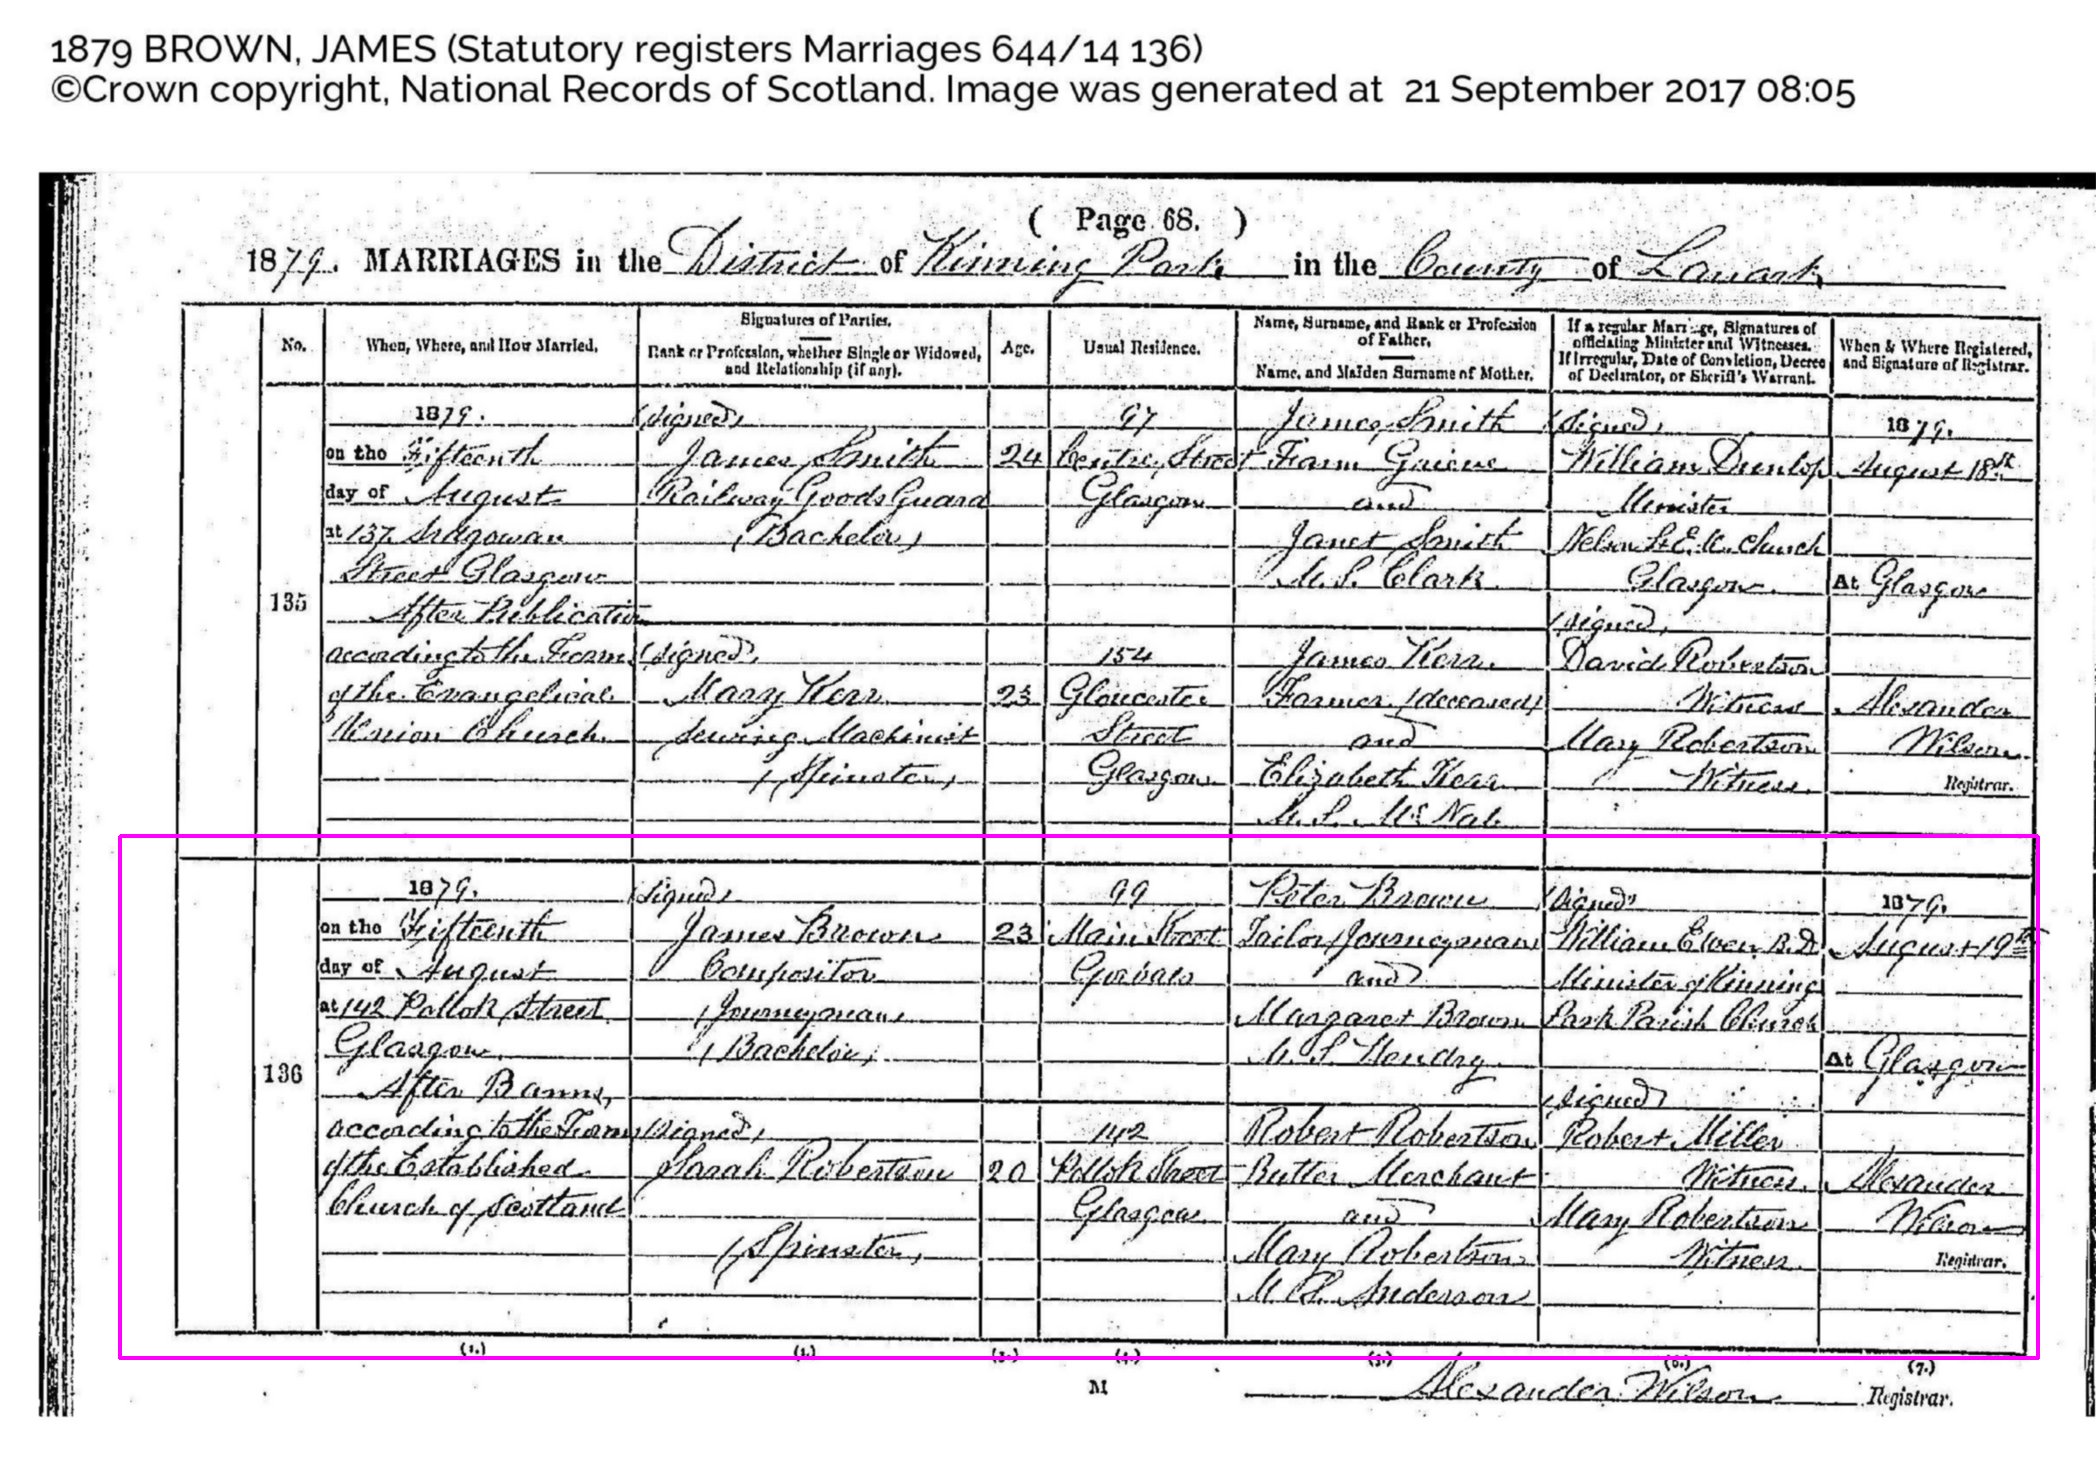 1879 BROWN, JAMES (Statutory registers Marriages 644/14 136)
©Crown copyright, National Records of Scotland. Image was generated at 21 September 2017 08:05
( Page 68. )
1879. MARRIAGES in the District of Kinning Park in the County of Lanark
No.
When, Where, and How Married.
Signatures of Parties.
Rank or Profession, whether Single or Widowed,
and Relationship (if any).
Age.
Usual Residence.
Name, Surname, and Rank or Profession
of Father.
Name, and Maiden Surname of Mother.
If a regular Marriage, Signatures of
officiating Minister and Witnesses.
If Irregular, Date of Conviction, Decree
of Declarator, or Sheriff's Warrant.
When & Where Registered,
and Signature of Registrar.
135
1879.
on the Fifteenth
day of August
at 137 Ardgowan
Street Glasgow
After Publication
according to the Forms
of the Evangelical
Union Church
(signed)
James Smith
Railway Goods Guard
(Bachelor)
(signed)
Mary Kerr
Sewing Machinist
(Spinster)
24
23
97
Centre Street
Glasgow
154
Gloucester
Street
Glasgow
James Smith
Farm Grieve
and
Janet Smith
M.S. Clark
James Kerr
Farmer (deceased)
and
Elizabeth Kerr
M.S. McNab
(signed)
William Dunlop
Minister
Nelson St E.U. Church
Glasgow
(signed)
David Robertson
Witness
Mary Robertson
Witness
1879.
August 18th
At Glasgow
Alexander
Wilson
Registrar.
136
1879.
on the Fifteenth
day of August
at 142 Pollok Street
Glasgow
After Banns,
according to the Forms
of the Established
Church of Scotland
(signed)
James Brown
Compositor
(Journeyman)
(Bachelor)
(signed)
Sarah Robertson
(Spinster)
23
20
99
Main Street
Gorbals
142
Pollok Street
Glasgow
Peter Brown
Tailor (Journeyman)
and
Margaret Brown
M.S. Hendry
Robert Robertson
Butter Merchant
and
Mary Robertson
M.S. Anderson
(signed)
William Ewen B.D.
Minister of Kinning
Park Parish Church
(signed)
Robert Miller
Witness
Mary Robertson
Witness
1879.
August 19th
At Glasgow
Alexander
Wilson
Registrar.
(1.) (2.) (3.) (4.) (5.) (6.) (7.)
M
Alexander Wilson Registrar.